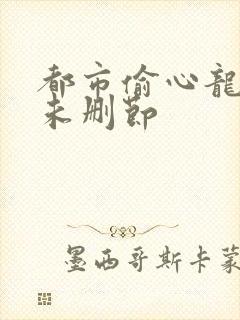 都市偷心龍
未删節
墨西哥斯卡蒙